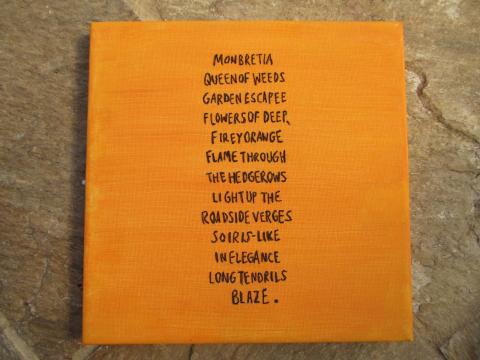 MONBRETIA
QUEEN OF WEEDS
GARDEN ESCAPEE
FLOWERS OF DEEP,
FIREY ORANGE
FLAME THROUGH
THE HEDGEROWS
LIGHT UP THE
ROADSIDE VERGES
SO IRIS-LIKE
IN ELEGANCE
LONG TENDRILS
BLAZE.